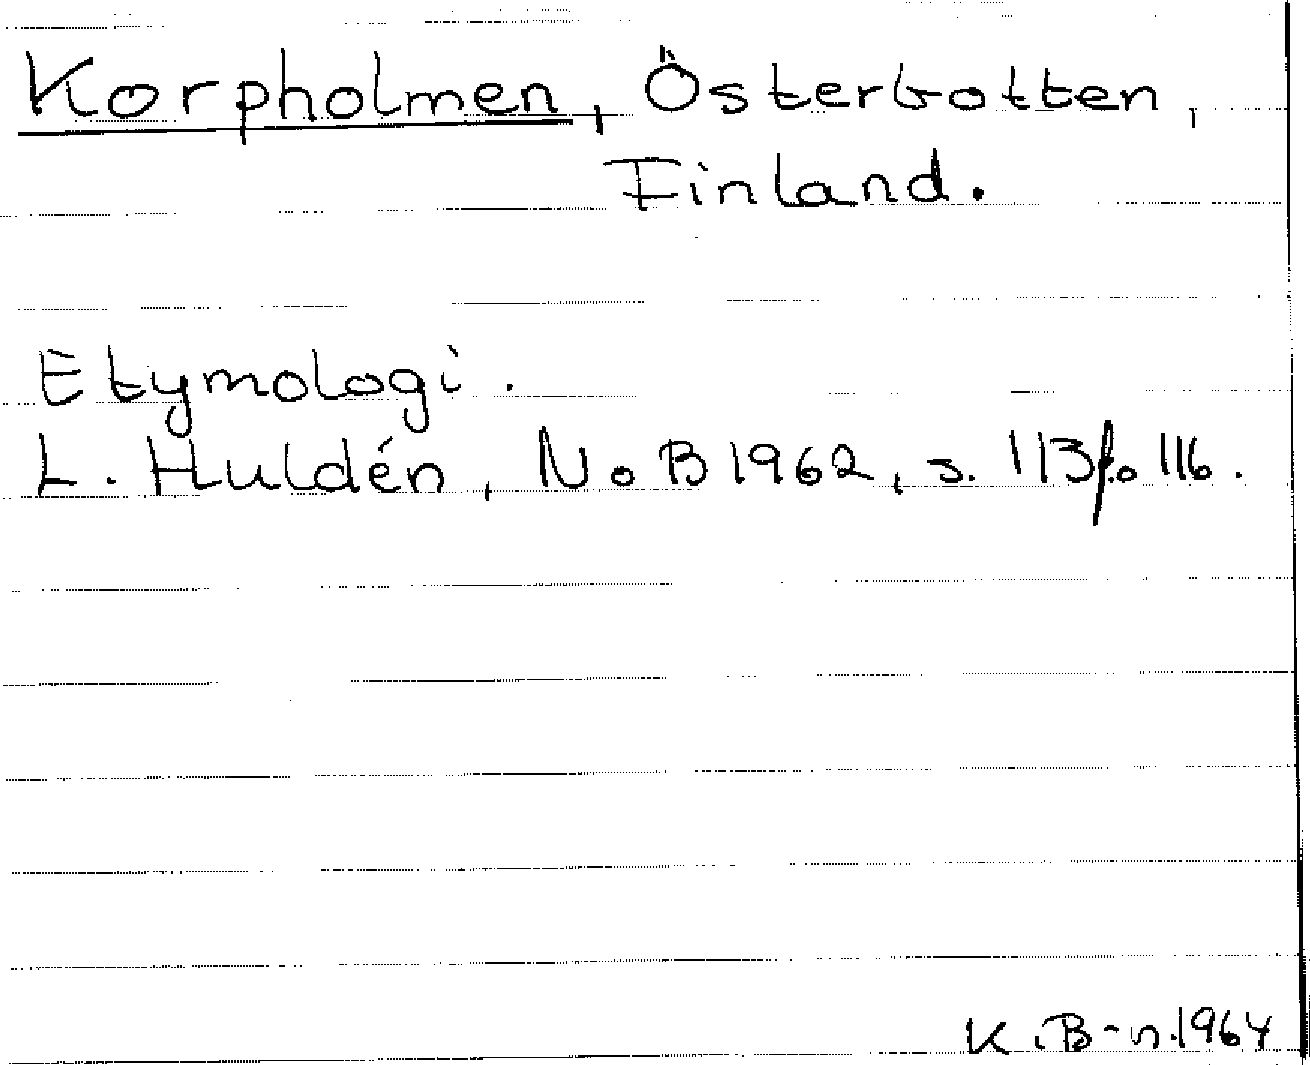 Korpholmen, Österbotten,
Finland.
Etymologi.
L. Huldén, NoB 1962, s. 113f. o 116.
K.B-n. 1964